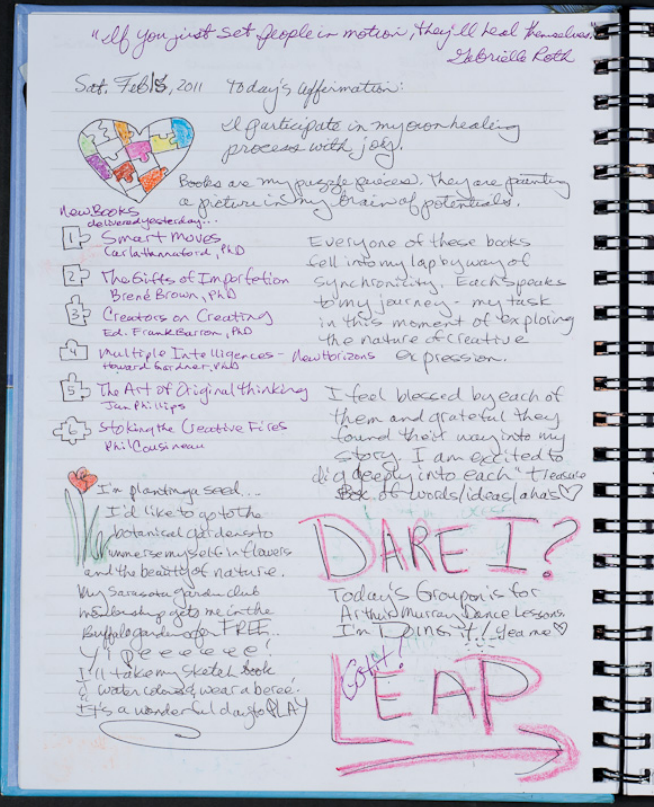 "If you just set people in motion, they'll heal themselves."
Gabrielle Roth
Sat. Feb 15, 2011 Today's affirmation:
I participate in my own healing
process with joy.
Books are my puzzle pieces. They are painting
a picture in my brain of potentials.
New Books
delivered yesterday...
1 Smart Moves
Carla Hannaford, PhD
2 The Gifts of Imperfection
Brené Brown, PhD
3 Creators on Creating
Ed. Frank Barron, PhD
4 Multiple Intelligences - New Horizons
Howard Gardner, PhD
5 The Art of Original thinking
Jan Phillips
6 Stoking the Creative Fires
Phil Cousineau
Everyone of these books
fell into my lap by way of
synchronicity. Each speaks
to my journey - my task
in this moment of exploring
the nature of creative
expression.
I feel blessed by each of
them and grateful they
found their way into my
story. I am excited to
dig deeply into each "treasure
Box of words/ideas/aha's♡
I'm planting a seed...
I'd like to go to the
botanical gardens to
immerse myself in flowers
and the beauty of nature.
My Sarasota garden club
membership gets me in the
Buffalo gardens for FREE..
Yipeeeeee!
I'll take my sketch book
& water colors & wear a beree!
It's a wonderful day to PLAY
DARE I?
Today's Groupon is for
Arthur Murray Dance Lessons.
I'm Doing it! Yea me♡
Got it!
LEAP